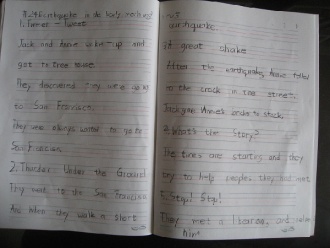 #24 Earthquake in the Early morning
Jack and Annie wake-up and
got to tree house.
They discovered they were going
to San Francisco.
They were always wanted to go to
San Francisco.
2. Thunder Under the Ground
They went to the San Francisco
And when they walk a short
earthquake.
3. A great shake
After the earthquake, Annie falled
to the crack in the street.
Jack give Annie's order to stuck.
? What's the Story?
Fire times are started and they
try to help people, they had met.
5. Stop! Stop!
They met a librarian, and
him